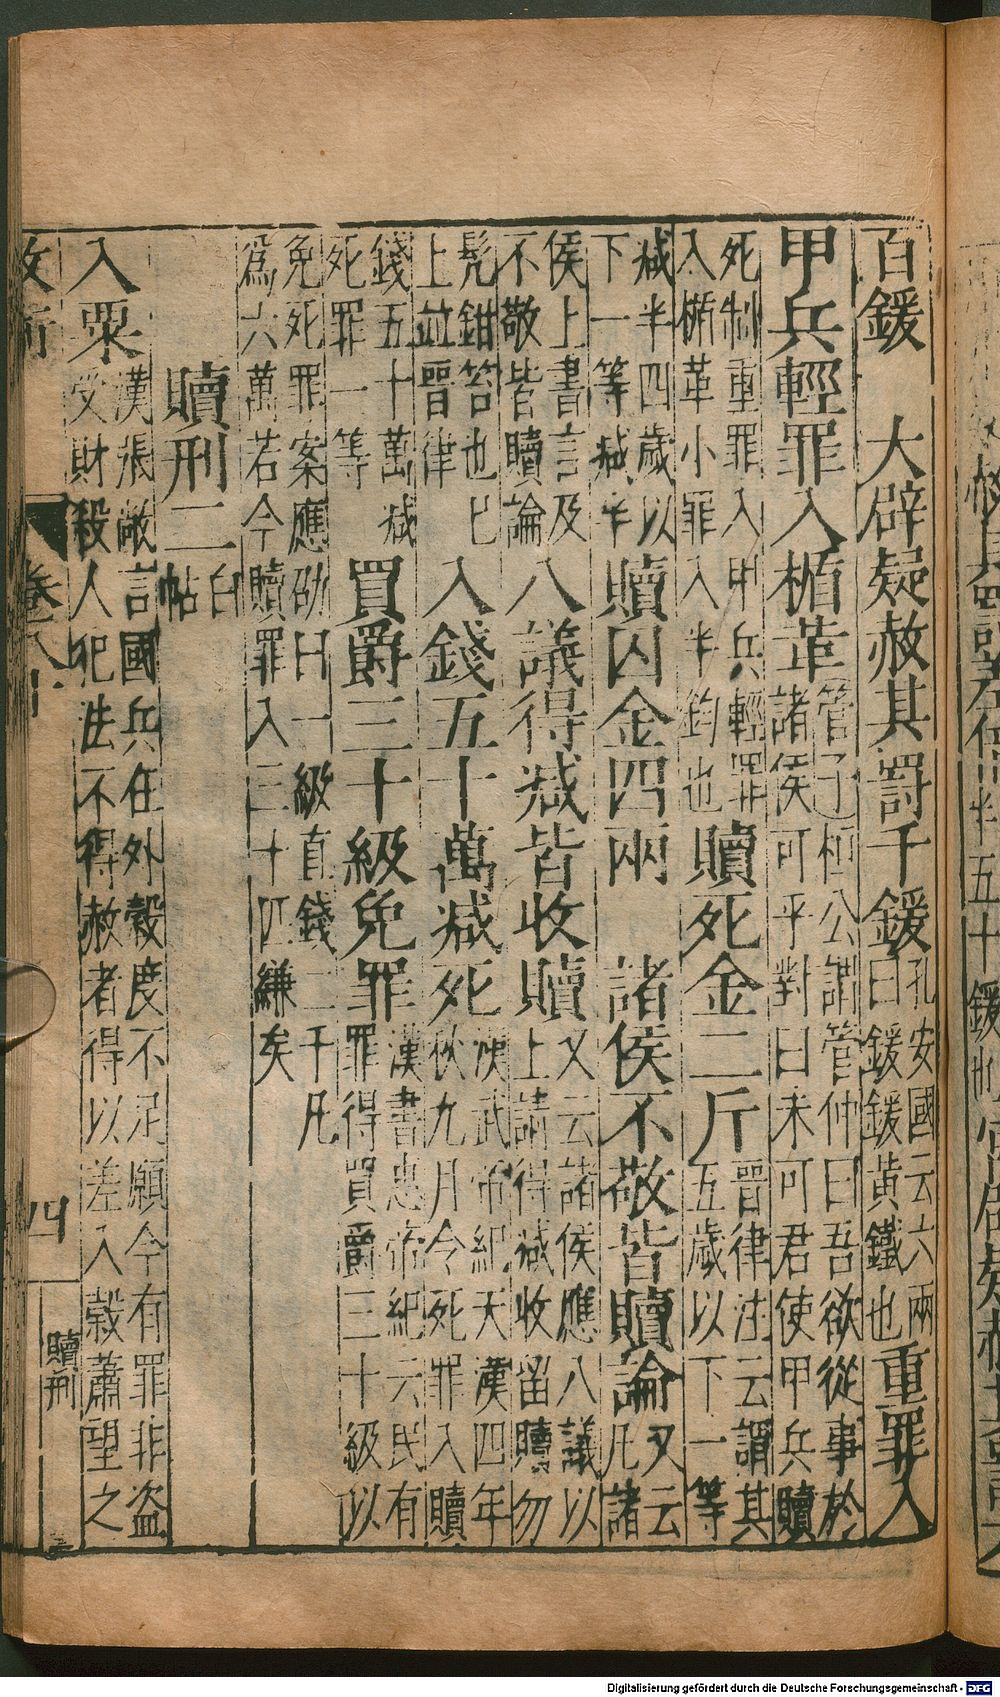 百鍰　大辟疑赦其罰千鍰孔安國云六兩曰鍰鍰黃鐵也重罪入
甲兵輕罪入楯革管子桓公謂管仲曰吾欲從事於諸侯可乎對曰未可君使甲兵贖
死制重罪入甲兵輕罪入楯革小罪入半鈞也贖死金二斤晉律注云謂其五歲以下一等
減半四歲以下一等減半贖囚金四兩　諸侯不敬皆贖論又云凡諸
侯上書言及不敬皆贖論八議得減皆收贖又云諸侯應八議以上請得減收留贖勿
髡鉗笞也已上並晉律入錢五十萬減死漢武帝紀天漢四年秋九月令死罪入贖
錢五十萬減死罪一等買爵三十級免罪漢書惠帝紀云民有罪得買爵三十級以
免死罪案應劭曰一級直錢二千凡爲六萬若今贖罪入三十匹縑矣
贖刑二白帖
入粟漢張敞言國兵在外穀度不足願令有罪非盜受財殺人犯法不得赦者得以差入穀蕭望之
卷八十
四
贖刑
Digitalisierung gefördert durch die Deutsche Forschungsgemeinschaft - DFG